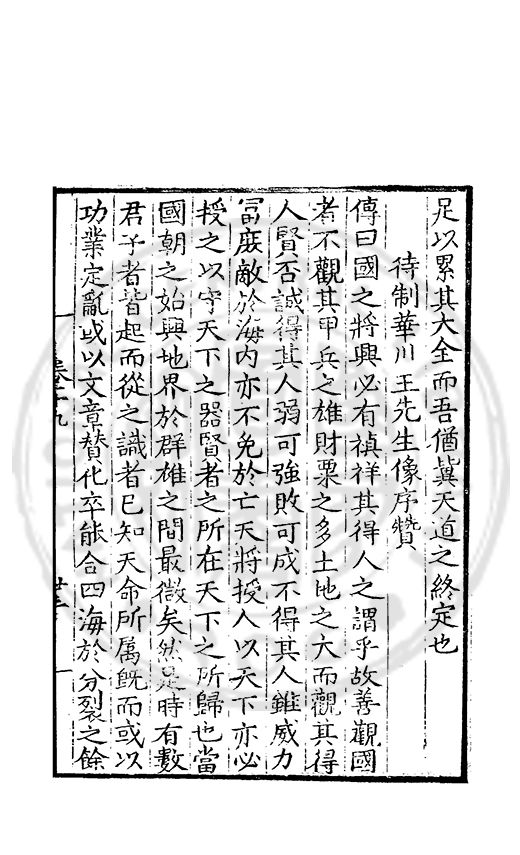 足以累其大全而吾猶冀天道之終定也
待制華川王先生像序贊
傳曰國之將興必有禎祥其得人之謂乎故善觀國
者不觀其甲兵之雄財粟之多土地之大而觀其得
人賢否誠得其人弱可強敗可成不得其人雖威力
富庶敵於海内亦不免於亡天將授人以天下亦必
授之以守天下之器賢者之所在天下之所歸也當
國朝之始興地界於群雄之間最微矣然是時有數
君子者皆起而從之識者已知天命所属既而或以
功業定亂或以文章賛化卒能合四海於分裂之餘